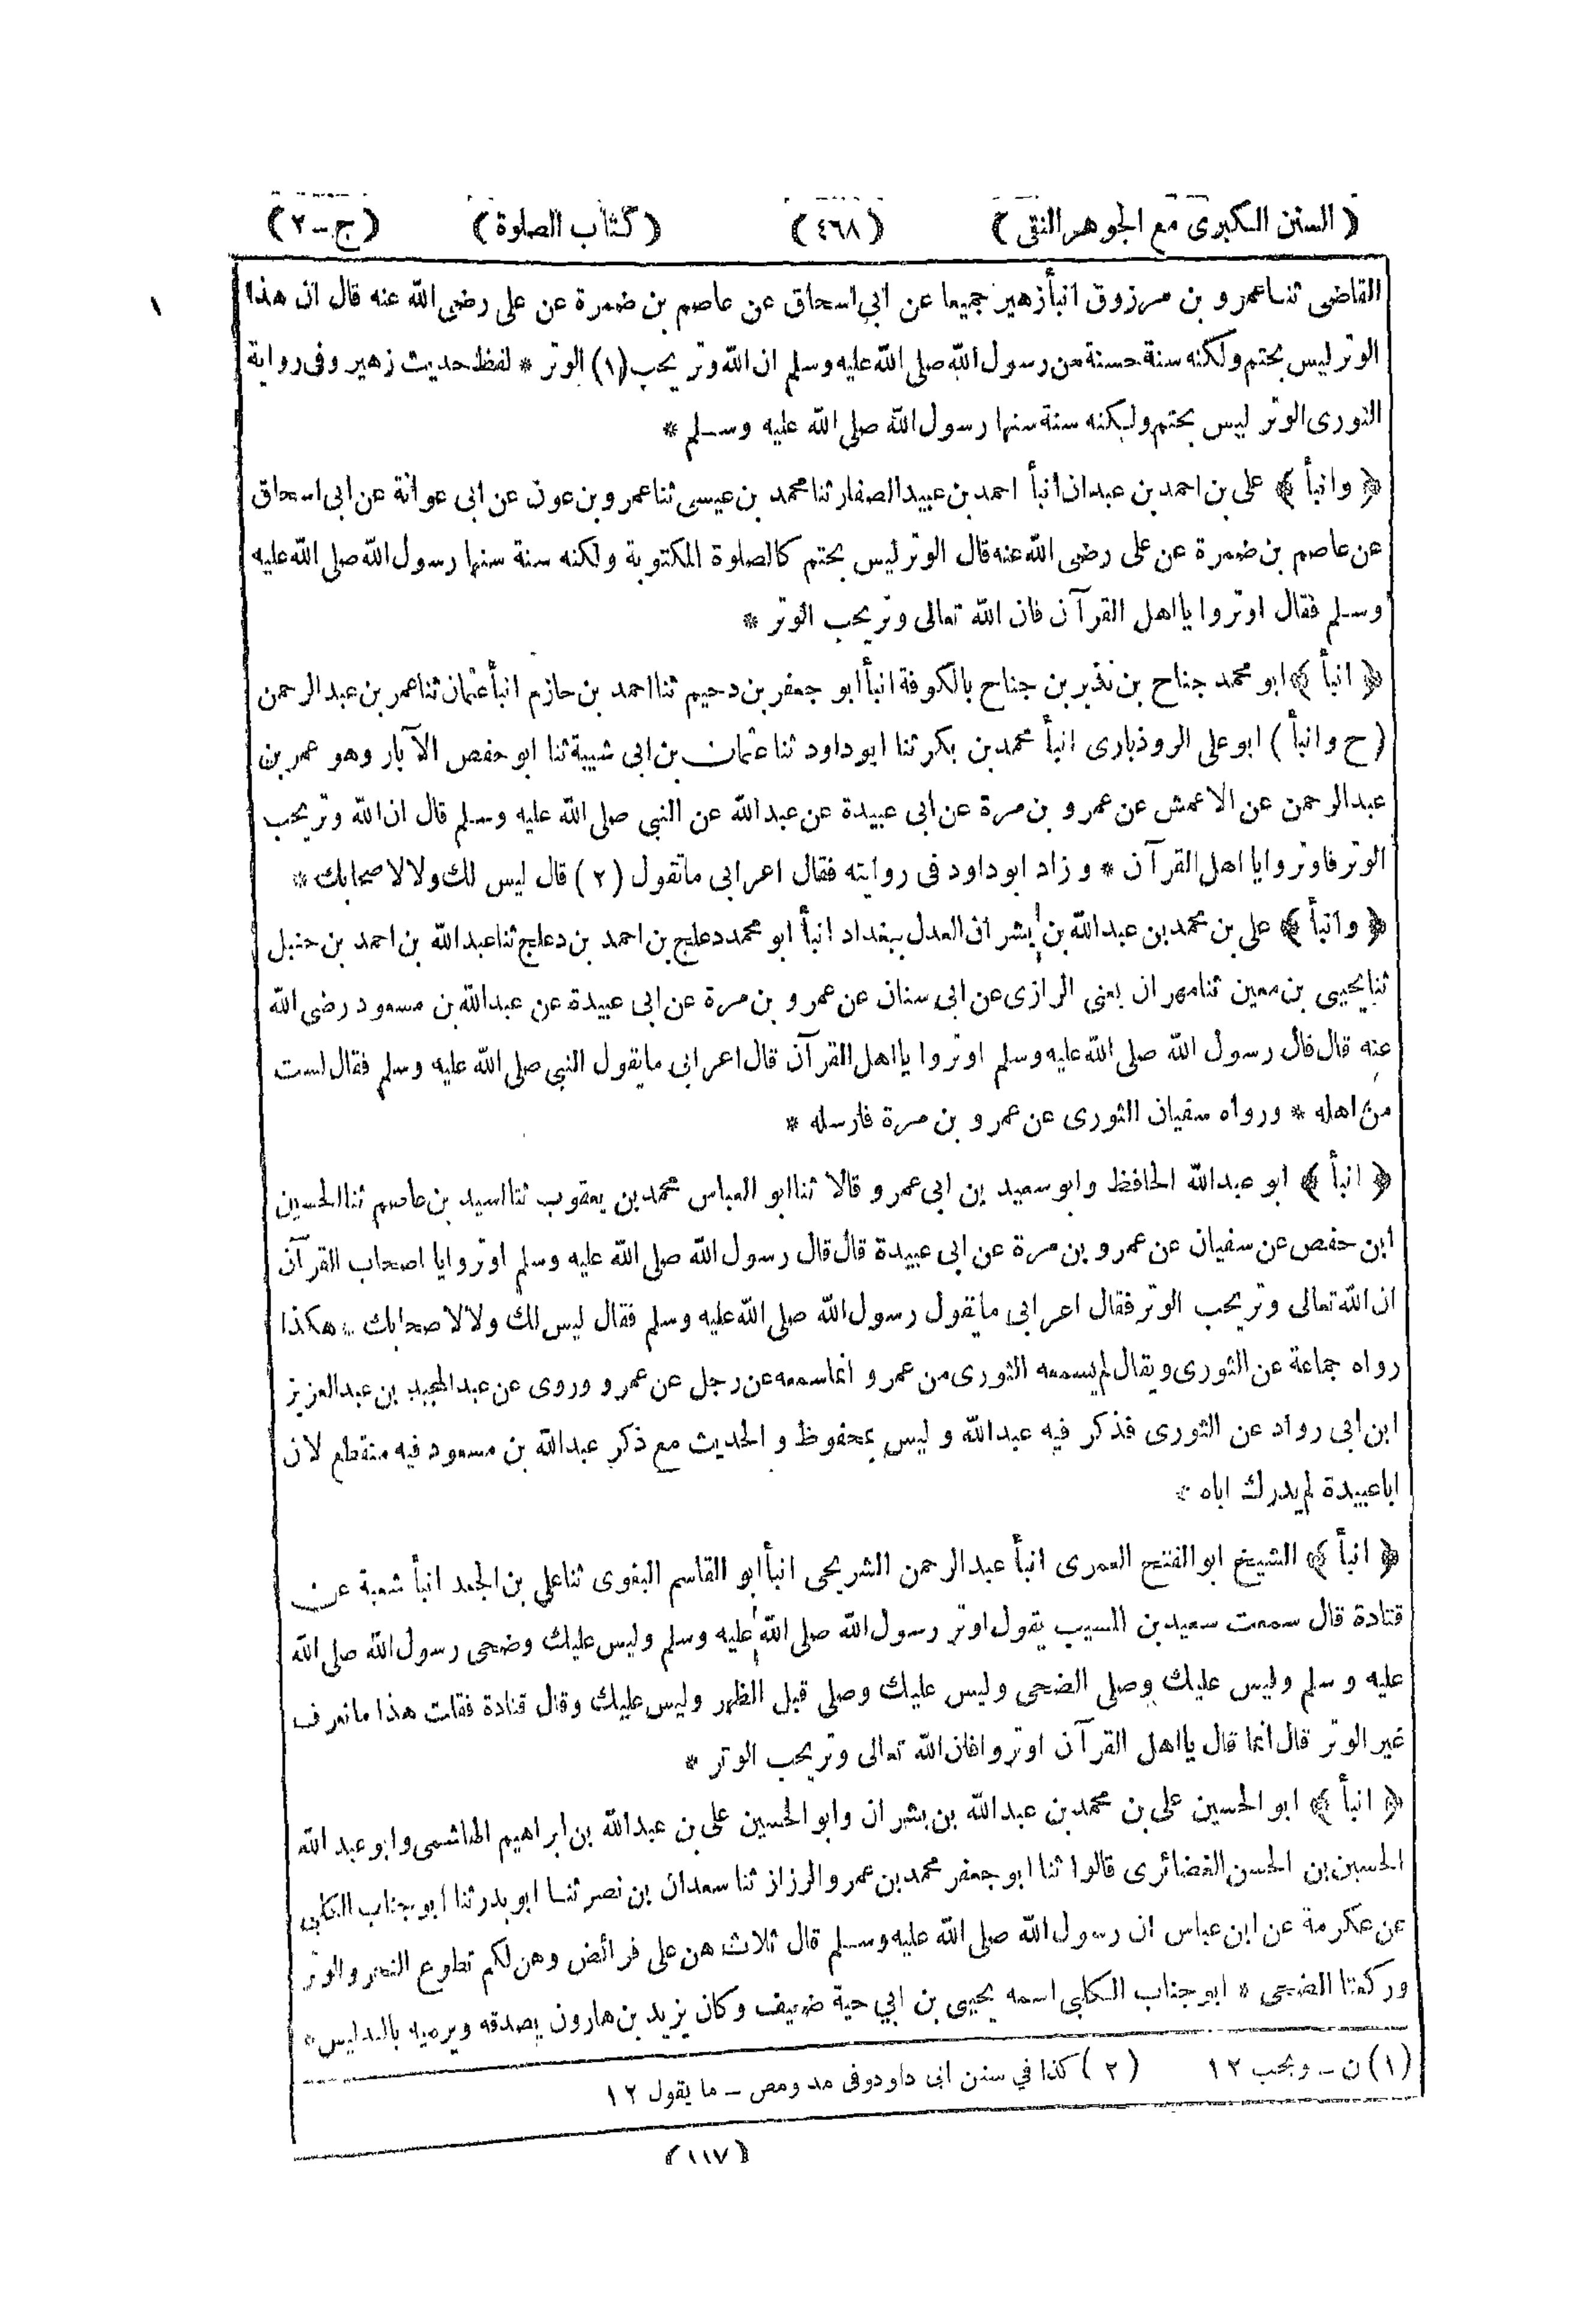 (السنن الكبرى مع الجوهر النقى) (٤٦٨) (كتاب الصلوة) (ج-٢)
١
القاضى ثنا عمرو بن مرزوق انبأ زهير جميعا عن ابي اسحاق عن عاصم بن ضمرة عن على رضى الله عنه قال ان هذا
الوتر ليس بحتم ولكنه سنة حسنة من رسول الله صلى الله عليه وسلم ان الله وتر يحب (١) الوتر * لفظ حديث زهير وفى رواية
الثورى الوتر ليس بحتم ولكنه سنة سنها رسول الله صلى الله عليه وسلم *
﴿ وانبأ ﴾ على بن احمد بن عبدان انبأ احمد بن عبيد الصفار ثنا محمد بن عيسى ثنا عمرو بن عون عن ابى عوانة عن ابى اسحاق
عن عاصم بن ضمرة عن على رضى الله عنه قال الوتر ليس بحتم كالصلوة المكتوبة ولكنه سنة سنها رسول الله صلى الله عليه
وسلم فقال اوتروا يا اهل القرآن فان الله تعالى وتر يحب الوتر *
﴿ انبأ ﴾ ابو محمد جناح بن نذير بن جناح بالكوفة انبأ ابو جعفر بن دحيم ثنا احمد بن حازم انبأ عثمان ثنا عمر بن عبد الرحمن
(ح وانبأ) ابو على الروذبارى انبأ محمد بن بكر ثنا ابو داود ثنا عثمان بن ابى شيبة ثنا ابو حفص الآبار وهو عمر بن
عبد الرحمن عن الاعمش عن عمرو بن مرة عن ابى عبيدة عن عبد الله عن النبي صلى الله عليه وسلم قال ان الله وتر يحب
الوتر فاوتروا يا اهل القرآن * وزاد ابو داود فى روايته فقال اعرابى ما تقول (٢) قال ليس لك ولا لاصحابك *
﴿ وانبأ ﴾ على بن محمد بن عبد الله بن بشران العدل ببغداد انبأ ابو محمد دعلج بن احمد بن دعلج ثنا عبد الله بن احمد بن حنبل
ثنا يحيى بن معين ثنا مهران يعنى الرازى عن ابى سنان عن عمرو بن مرة عن ابى عبيدة عن عبد الله بن مسعود رضى الله
عنه قال قال رسول الله صلى الله عليه وسلم اوتروا يا اهل القرآن قال اعرابى ما يقول النبي صلى الله عليه وسلم فقال لست
من اهله * ورواه سفيان الثورى عن عمرو بن مرة فارسله *
﴿ انبأ ﴾ ابو عبد الله الحافظ وابو سعيد بن ابى عمرو قالا ثنا ابو العباس محمد بن يعقوب ثنا اسيد بن عاصم ثنا الحسين
ابن حفص عن سفيان عن عمرو بن مرة عن ابى عبيدة قال قال رسول الله صلى الله عليه وسلم اوتروا يا اصحاب القرآن
ان الله تعالى وتر يحب الوتر فقال اعرابى ما يقول رسول الله صلى الله عليه وسلم فقال ليس لك ولا لاصحابك * هكذا
رواه جماعة عن الثورى ويقال لم يسمعه الثورى من عمرو انما سمعه عن رجل عن عمرو وروى عن عبد المجيد بن عبد العزيز
ابن ابى رواد عن الثورى فذكر فيه عبد الله وليس بمحفوظ والحديث مع ذكر عبد الله بن مسعود فيه منقطع لان
ابا عبيدة لم يدرك اباه *
﴿ انبأ ﴾ الشيخ ابو الفتح العمرى انبأ عبد الرحمن الشريحى انبأ ابو القاسم البغوى ثنا على بن الجعد انبأ شعبة عن
قتادة قال سمعت سعيد بن المسيب يقول اوتر رسول الله صلى الله عليه وسلم وليس عليك وضحى رسول الله صلى الله
عليه وسلم وليس عليك وصلى الضحى وليس عليك وصلى قبل الظهر وليس عليك وقال قتادة فقلت هذا ما نعرف
غير الوتر قال انما قال يا اهل القرآن اوتروا فان الله تعالى وتر يحب الوتر *
﴿ انبأ ﴾ ابو الحسين على بن محمد بن عبد الله بن بشران وابو الحسين على بن عبد الله بن ابراهيم الهاشمى وابو عبد الله
الحسين بن الحسن الغضائرى قالوا ثنا ابو جعفر محمد بن عمرو الرزاز ثنا سعدان بن نصر ثنا ابو بدر ثنا ابو جناب الكلبى
عن عكرمة عن ابن عباس ان رسول الله صلى الله عليه وسلم قال ثلاث هن على فرائض وهن لكم تطوع النحر والوتر
وركعتا الضحى * ابو جناب الكلبي اسمه يحيى بن ابي حية ضعيف وكان يزيد بن هارون يصدقه ويرميه بالتدليس *
(١) ن - ويحب ١٢ (٢) كذا في سنن ابى داود وفى مد ومص - ما يقول ١٢
(١١٧)